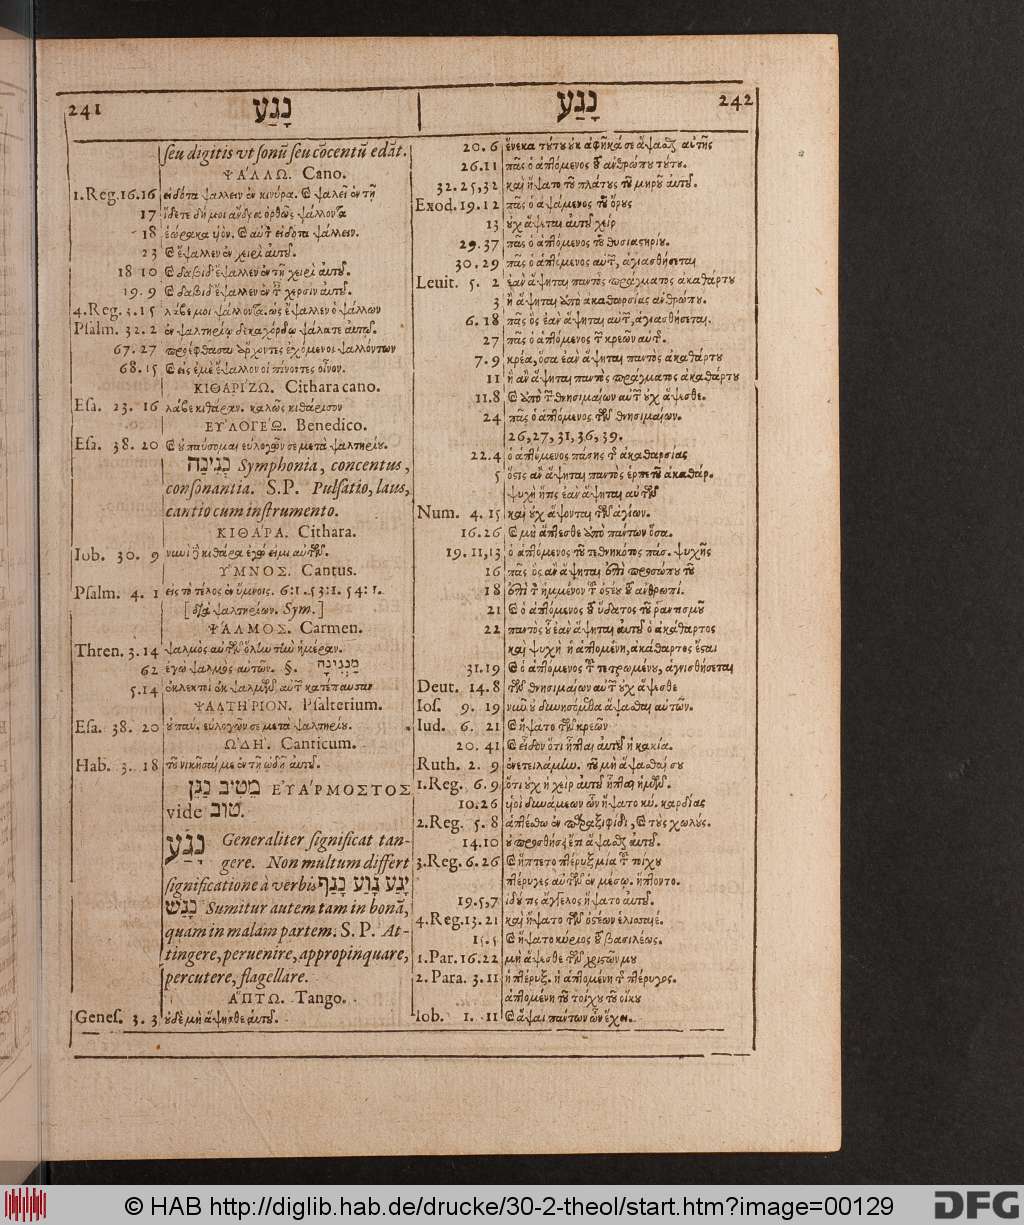 241 נָגַע
seu digitis vt sonũ seu cõcentũ edãt.
ΨΑ´ΛΛΩ. Cano.
1. Reg. 16. 16 εἰδότα ψάλλειν ἐν κινύρᾳ. Ϗ ψαλεῖ ἐν τῇ
17 ἴδετε δή μοι ἄνδρα ὀρθῶς ψάλλοντα
18 ἑώρακα υἱὸν. Ϗ αὐτὸν εἰδότα ψάλλειν.
23 Ϗ ἔψαλλεν ἐν χειρὶ αὐτοῦ.
18 10 Ϗ δαβὶδ ἔψαλλεν ἐν τῇ χειρὶ αὐτοῦ.
19. 9 Ϗ δαβὶδ ἔψαλλεν ἐν τ χερσὶν αὐτοῦ.
4. Reg. 3. 15 λάβε μοι ψάλλοντα. ὡς ἔψαλλεν ὁ ψάλλων
Psalm. 32. 2 ἐν ψαλτηρίῳ δεκαχόρδῳ ψάλατε αὐτῷ.
67. 27 προέφθασαν ἄρχοντες ἐχόμενοι ψαλλόντων
68. 15 Ϗ εἰς ἐμὲ ἔψαλλον οἱ πίνοντες οἶνον.
ΚΙΘΑΡΙ´ΖΩ. Cithara cano.
Esa. 23. 16 λάβε κιθάραν. καλῶς κιθάρισον
ΕΥ᾿ΛΟΓΕ´Ω. Benedico.
Esa. 38. 20 Ϗ οὐ παύσομαι εὐλογῶν σε μετὰ ψαλτηρίου.
נְגִינָה Symphonia, concentus,
consonantia. S. P. Pulsatio, laus,
cantio cum instrumento.
ΚΙΘΑ´ΡΑ. Cithara.
Iob. 30. 9 νυνὶ δὲ κιθάρα ἐγώ εἰμι αὐτῶν.
ΥΜΝΟΣ. Cantus.
Psalm. 4. 1 εἰς τὸ τέλος ἐν ὕμνοις. 6:1. 53:1. 54:1.
[ διὰ ψαλτηρίων. Sym. ]
ΨΑΛΜΟ´Σ. Carmen.
Thren. 3. 14 ψαλμὸς αὐτῶν ὅλην τὴν ἡμέραν.
62 ἐγὼ ψαλμὸς αὐτῶν. §. מַנְגִּינָה
5. 14 ἐκλεκτοὶ ἐκ ψαλμῶν αὐτ κατέπαυσαν
ΨΑΛΤΗ´ΡΙΟΝ. Psalterium.
Esa. 38. 20 οὐ παύ. εὐλογῶν σε μετὰ ψαλτηρίου.
Ω᾿ΔΗ´. Canticum.
Hab. 3. 18 τοῦ νικῆσαί με ἐν τῇ ᾠδῇ αὐτοῦ.
מֵטִיב נַגֵּן ΕΥ᾿Α´ΡΜΟΣΤΟΣ
vide טוֹב.
נָגַע Generaliter significat tan-
gere. Non multum differt
significatione à verbis יָגַע נוּעַ נָגַף
נָגַשׁ Sumitur autem tam in bonã,
quàm in malam partem. S. P. At-
tingere, peruenire, appropinquare,
percutere, flagellare.
Α῞ΠΤΩ. Tango.
Genes. 3. 3 οὐδὲ μὴ ἅψησθε αὐτοῦ.
נָגַע 242
20. 6 ἕνεκα τούτου οὐκ ἀφῆκά σε ἅψασθαι αὐτῆς
26. 11 πᾶς ὁ ἁπτόμενος τοῦ ἀνθρώπου τούτου.
32. 25, 32 καὶ ἥψατο τοῦ πλάτους τοῦ μηροῦ αὐτοῦ.
Exod. 19. 12 πᾶς ὁ ἁψάμενος τοῦ ὄρους
13 οὐχ ἅψεται αὐτοῦ χείρ
29. 37 πᾶς ὁ ἁπτόμενος τοῦ θυσιαστηρίου.
30. 29 πᾶς ὁ ἁπτόμενος αὐτ, ἁγιασθήσεται
Leuit. 5. 2 ἐὰν ἅψηται παντὸς πράγματος ἀκαθάρτου
3 ἢ ἅψηται ἀπὸ ἀκαθαρσίας ἀνθρώπου.
6. 18 πᾶς ὃς ἐὰν ἅψηται αὐτ, ἁγιασθήσεται.
27 πᾶς ὁ ἁπτόμενος τ κρεῶν αὐτ.
7. 9 κρέα, ὅσα ἐὰν ἅψηται παντὸς ἀκαθάρτου
11 ἣ ἂν ἅψηται παντὸς πράγματος ἀκαθάρτου
11. 8 Ϗ ἀπὸ τ θνησιμαίων αὐτ οὐχ ἅψεσθε.
24 πᾶς ὁ ἁπτόμενος τῶν θνησιμαίων.
26, 27, 31, 36, 39.
22. 4 ὁ ἁπτόμενος πάσης τ ἀκαθαρσίας
5 ὅστις ἂν ἅψηται παντὸς ἑρπετοῦ ἀκαθάρ.
ψυχὴ ἥτις ἐὰν ἅψηται αὐτῶν
Num. 4. 15 καὶ οὐχ ἅψονται τῶν ἁγίων.
16. 26 Ϗ μὴ ἅπτεσθε ἀπὸ πάντων ὅσα.
19. 11, 13 ὁ ἁπτόμενος τοῦ τεθνηκότος πάσ. ψυχῆς
16 πᾶς ὃς ἂν ἅψηται ἐπὶ προσώπου τοῦ
18 ἐπὶ τ ἡμμένον τοῦ ὀστέου τοῦ ἀνθρωπί.
21 Ϗ ὁ ἁπτόμενος τοῦ ὕδατος τοῦ ῥαντισμοῦ
22 παντὸς οὗ ἐὰν ἅψηται αὐτοῦ ὁ ἀκάθαρτος
καὶ ψυχὴ ἡ ἁπτομένη, ἀκάθαρτος ἔσται
31. 19 Ϗ ὁ ἁπτόμενος τ τετρωμένου, ἁγνισθήσεται
Deut. 14. 8 τῶν θνησιμαίων αὐτ οὐχ ἅψεσθε
Ios. 9. 19 νῦν οὐ δυνησόμεθα ἅψασθαι αὐτῶν.
Iud. 6. 21 Ϗ ἥψατο τῶν κρεῶν
20. 41 Ϗ εἶδον ὅτι ἧπται αὐτοῦ ἡ κακία.
Ruth. 2. 9 ἐνετειλάμην. τοῦ μὴ ἅψασθαί σου
1. Reg. 6. 9 ὅτι οὐχ ἡ χεὶρ αὐτοῦ ἧπται ἡμῶν.
10. 26 υἱοὶ δυνάμεων ὧν ἥψατο κύ. καρδίας
2. Reg. 5. 8 ἁπτέσθω ἐν παραξιφίδι, Ϗ τοὺς χωλούς.
14. 10 οὐ προσθήσῃ ἔτι ἅψασθαι αὐτοῦ.
3. Reg. 6. 26 Ϗ ἥπτετο πτέρυξ μία τ τοίχου
πτέρυγες αὐτῶν ἐν μέσῳ. ἥπτοντο.
19. 5, 7 ἰδού τις ἄγγελος ἥψατο αὐτοῦ.
4. Reg. 13. 21 καὶ ἥψατο τῶν ὀστέων ἐλισσαιέ.
15. 5 Ϗ ἥψατο κύριος τοῦ βασιλέως.
1. Par. 16. 22 μὴ ἅψεσθε τῶν χριστῶν μου
2. Para. 3. 11 ἡ πτέρυξ. ἡ ἁπτομένη τ πτέρυγος.
ἁπτομένη τοῦ τοίχου τοῦ οἴκου
Iob. 1. 11 Ϗ ἅψαι πάντων ὧν ἔχει.
© HAB http://diglib.hab.de/drucke/30-2-theol/start.htm?image=00129
DFG